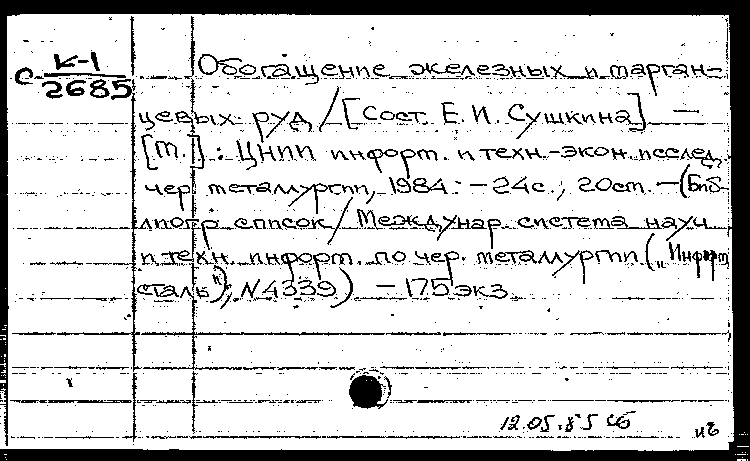 С К-1
2685
Обогащение железных и марган-
цевых руд / [Сост. Е. И. Сушкина] —
[М.] : ЦНИИ информ. и техн.-экон. исслед.
чер. металлургии, 1984. — 24 с.; 20 см. — (Биб-
лиогр. список / Междунар. система науч.
и техн. информ. по чер. металлургии („Информ
сталь"); N 4339) — 175 экз.
12.05.85 сб